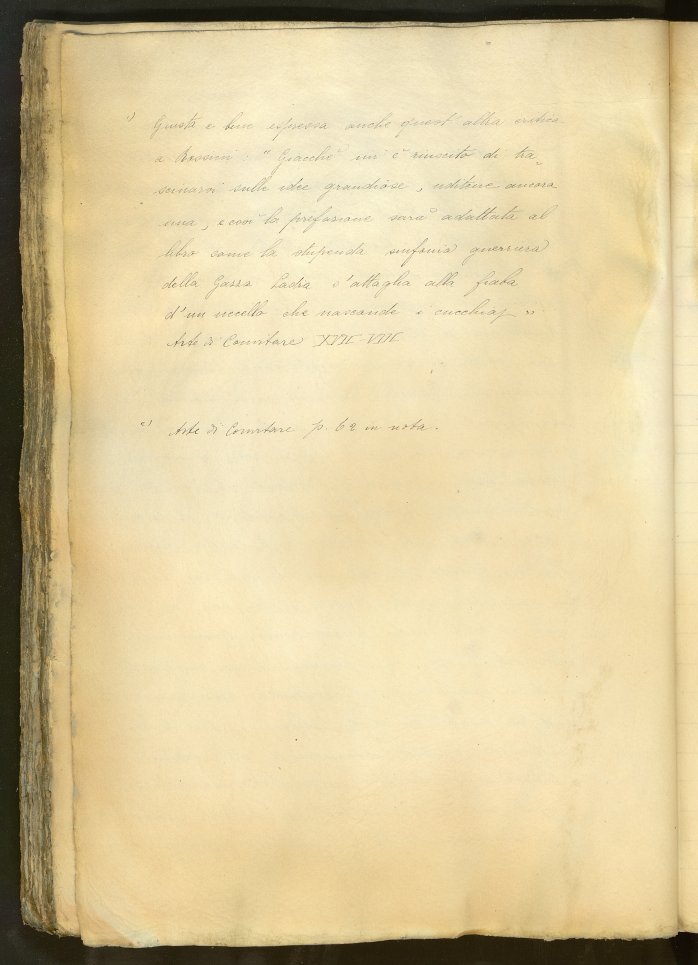 1) Giusta e bene espressa anche quest'altra critica
a Rossini: "Giacchè mi è riuscito di tra-
scinarvi sulle idee grandiose, uditene ancora
una, e così la prefazione sarà adattata al
libro come la stupenda sinfonia guerriera
della Gazza Ladra s'attaglia alla fiaba
d'un uccello che nasconde i cucchiaj"
Arte di Convitare XVII-VIII
2) Arte di Convitare p. 62 in nota.